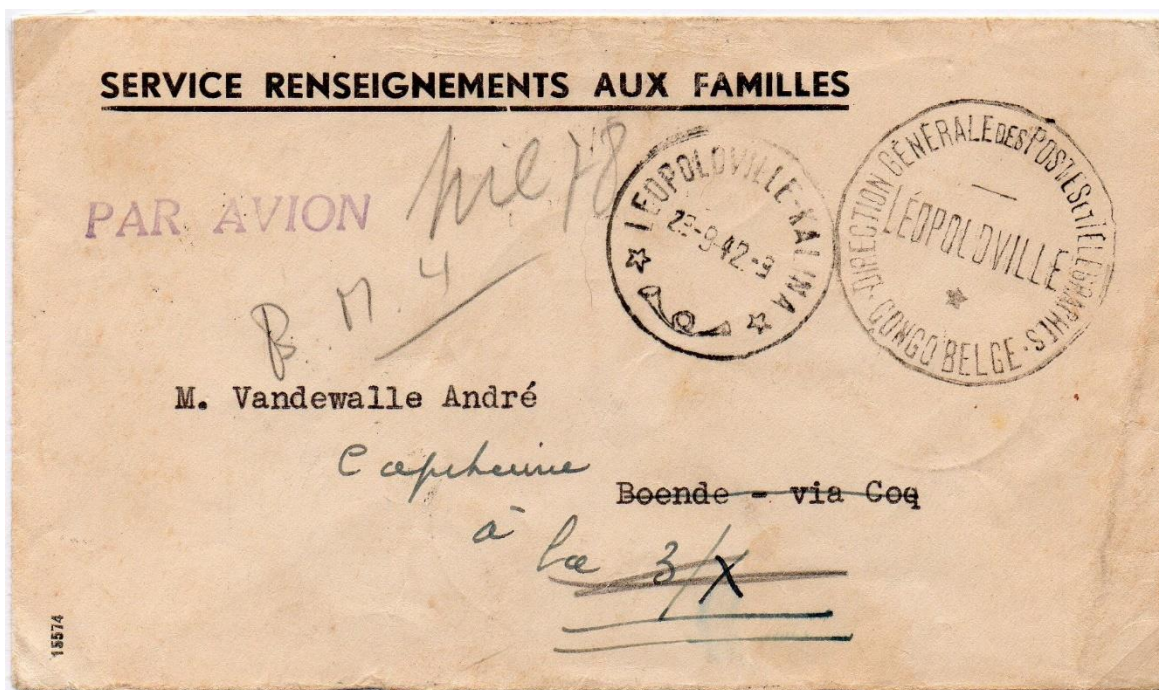 SERVICE RENSEIGNEMENTS AUX FAMILLES
PAR AVION
LEOPOLDVILLE-KALINA
-9-42-9
DIRECTION GÉNÉRALE DES POSTES ET TÉLÉGRAPHES
LÉOPOLDVILLE
CONGO BELGE
B. M. 4
M. Vandewalle André
Capitaine
Boende - via Coq
à
la 3/X
15574